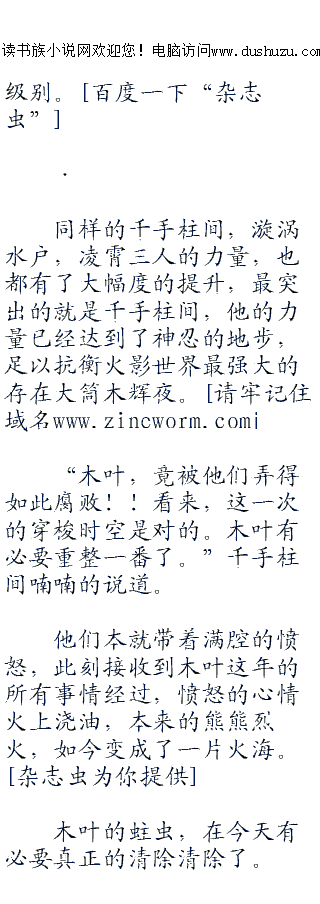 读书族小说网欢迎您！电脑访问www.dushuzu.com
级别。[百度一下“杂志
虫”]
．
同样的千手柱间，漩涡
水户，凌霄三人的力量，也
都有了大幅度的提升，最突
出的就是千手柱间，他的力
量已经达到了神忍的地步，
足以抗衡火影世界最强大的
存在大筒木辉夜。[请牢记住
域名www.zincworm.com|
“木叶，竟被他们弄得
如此腐败！！看来，这一次
的穿梭时空是对的。木叶有
必要重整一番了。”千手柱
间喃喃的说道。
他们本就带着满腔的愤
怒，此刻接收到木叶这年的
所有事情经过，愤怒的心情
火上浇油，本来的熊熊烈
火，如今变成了一片火海。
[杂志虫为你提供]
木叶的蛀虫，在今天有
必要真正的清除清除了。